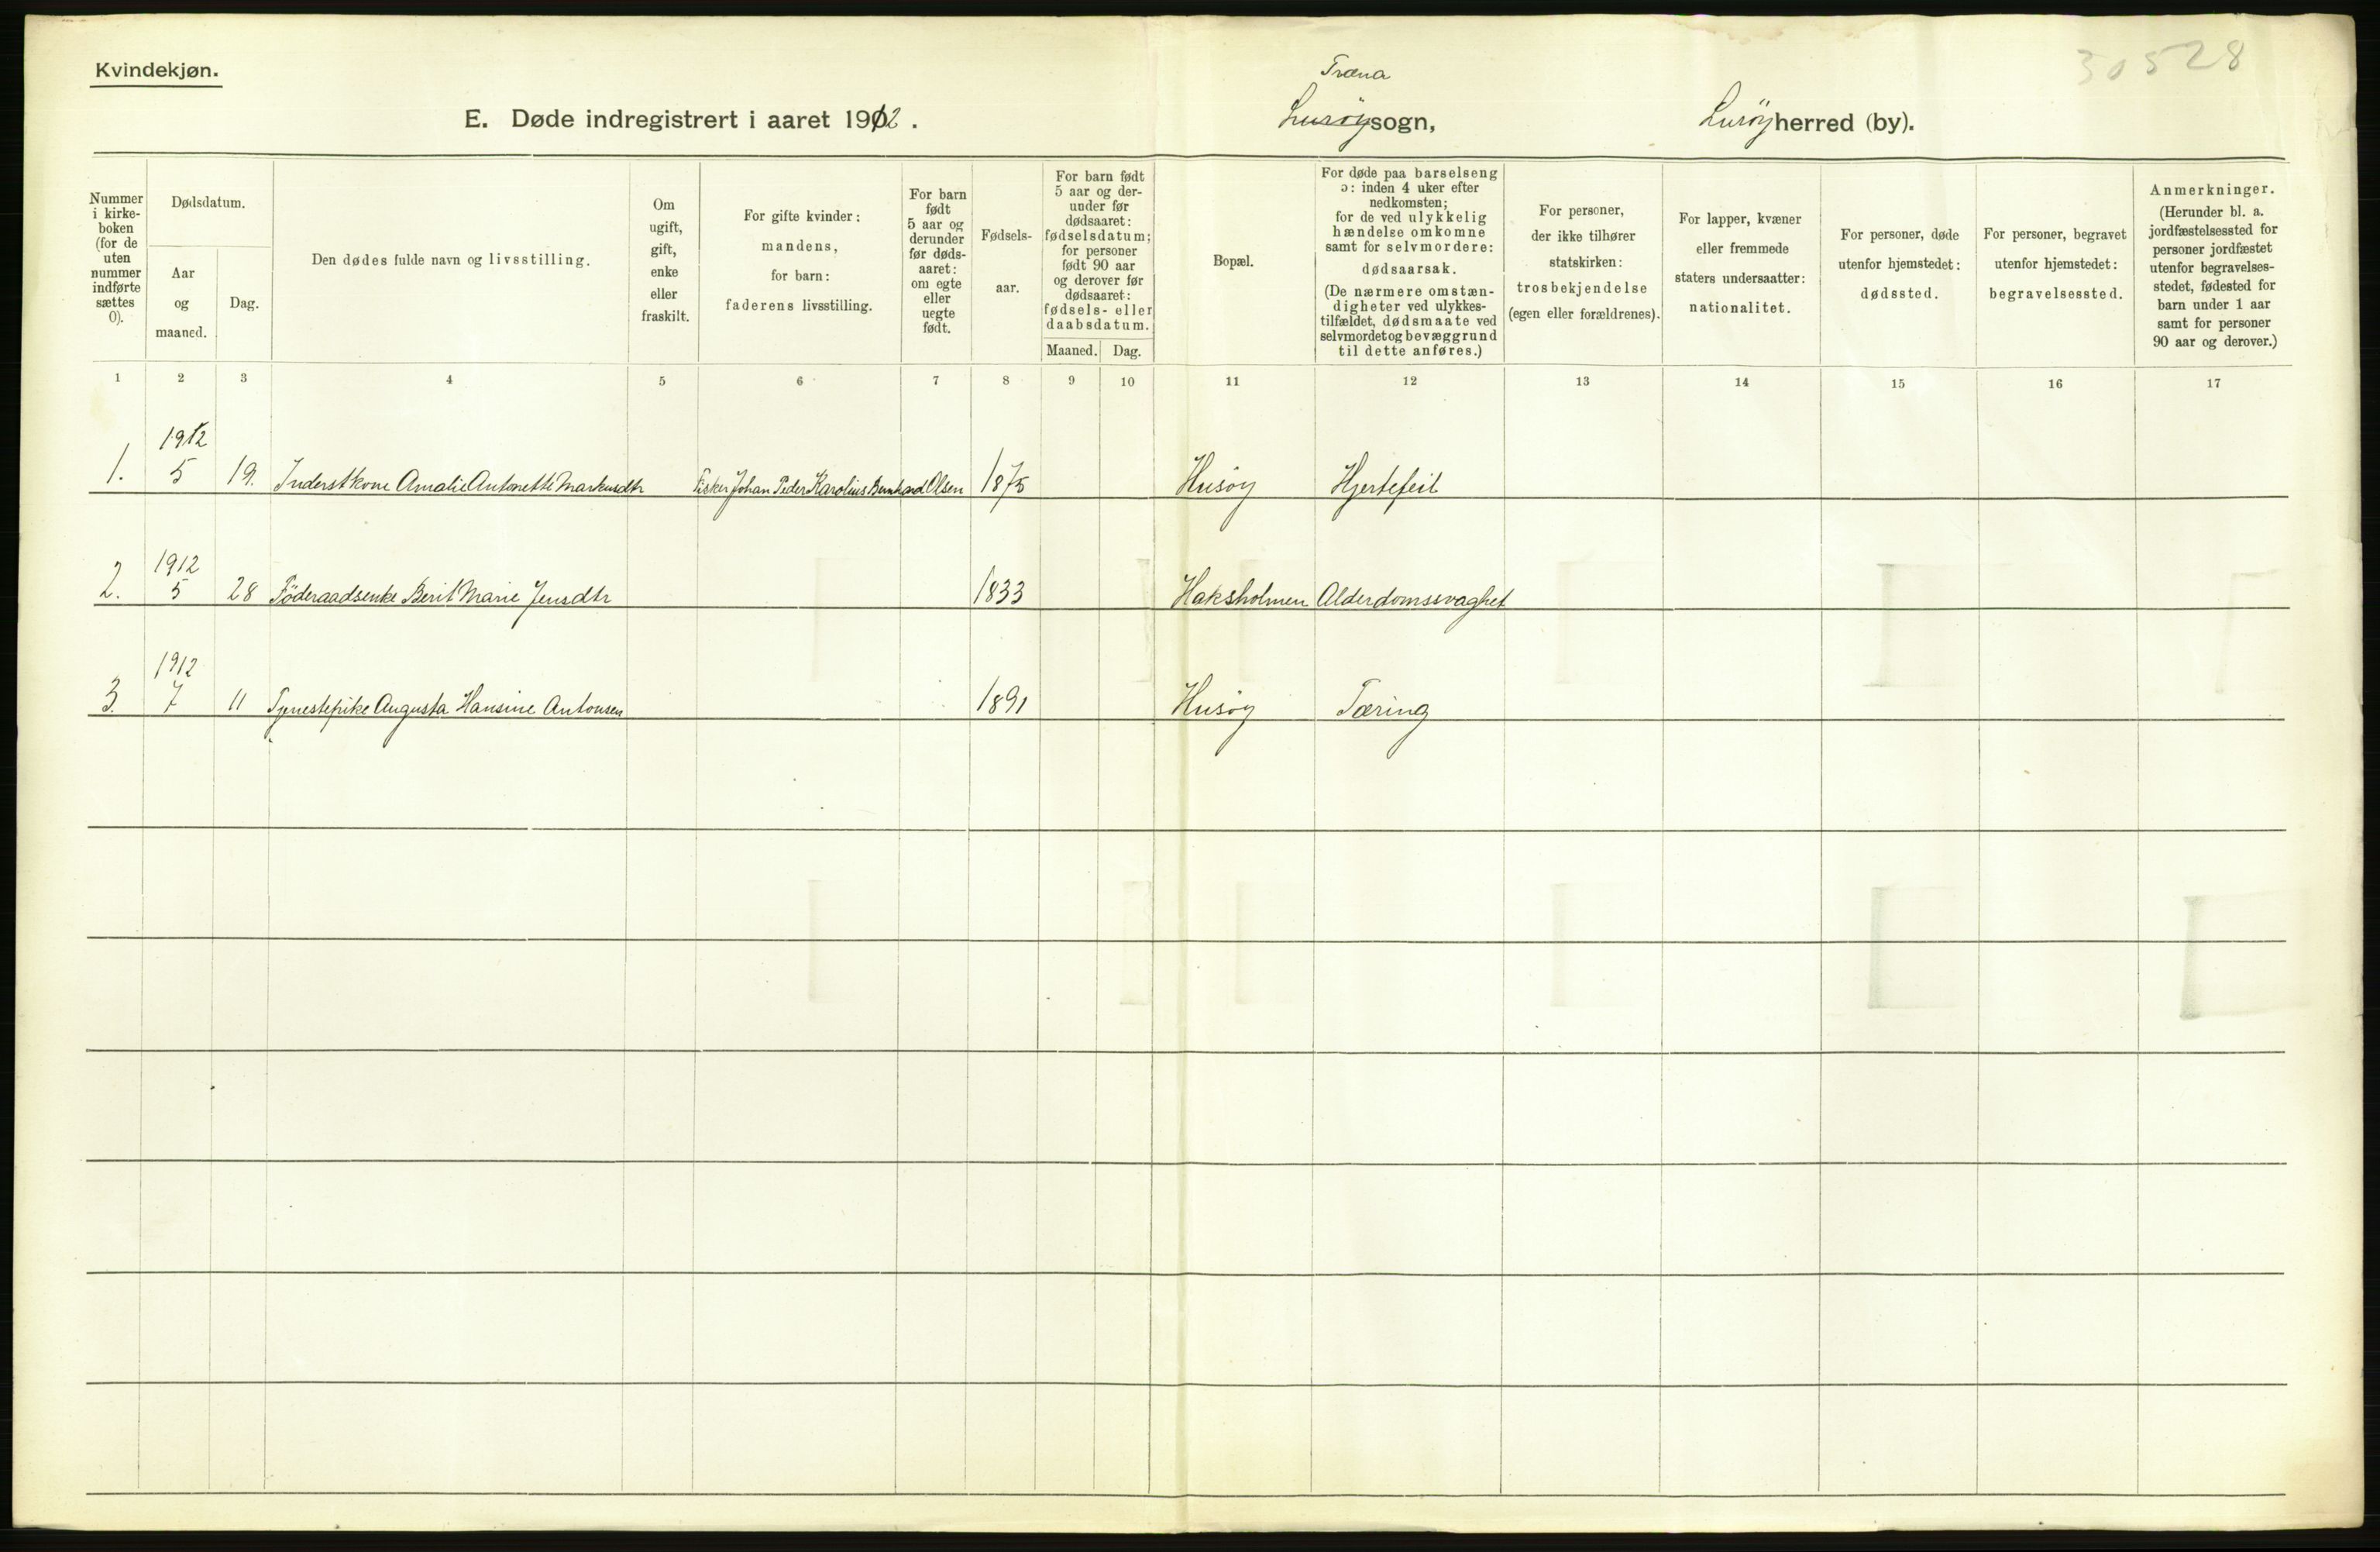 Kvindekjøn.
30528
Træna
E. Døde indregistrert i aaret 1912. Lurøy sogn, Lurøy herred (by).
Nummer i kirke-boken (for de uten nummer indførte sættes 0).
Dødsdatum.
Aar og maaned.
Dag.
Den dødes fulde navn og livsstilling.
Om ugift, gift, enke eller fraskilt.
For gifte kvinder: mandens, for barn: faderens livsstilling.
For barn født 5 aar og derunder før døds-aaret: om egte eller uegte født.
Fødsels-aar.
For barn født 5 aar og der-under før dødsaaret: fødselsdatum; for personer født 90 aar og derover før dødsaaret: fødsels- eller daabsdatum.
Maaned.
Dag.
Bopæl.
For døde paa barselseng ɔ: inden 4 uker efter nedkomsten; for de ved ulykkelig hændelse omkomne samt for selvmordere: dødsaarsak. (De nærmere omstæn-digheter ved ulykkes-tilfældet, dødsmaate ved selvmordet og bevæggrund til dette anføres.)
For personer, der ikke tilhører statskirken: trosbekjendelse (egen eller forældrenes).
For lapper, kvæner eller fremmede staters undersaatter: nationalitet.
For personer, døde utenfor hjemstedet: dødssted.
For personer, begravet utenfor hjemstedet: begravelsessted.
Anmerkninger. (Herunder bl. a. jordfæstelsessted for personer jordfæstet utenfor begravelses-stedet, fødested for barn under 1 aar samt for personer 90 aar og derover.)
1 2 3 4 5 6 7 8 9 10 11 12 13 14 15 16 17
1912
1. 5 19. Inderstkone Amalie Antonette Markusdtr Fisker Johan Peder Karolius Bernhard Olsen 1875 Husöy Hjertefeil
1912
2. 5 28 Föderaadsenke Berit Marie Jensdtr 1833 Haksholmen Alderdomssvaghet
1912
3. 7 11 Tjenestepike Augusta Hansine Antonsen 1891 Husöy Tæring